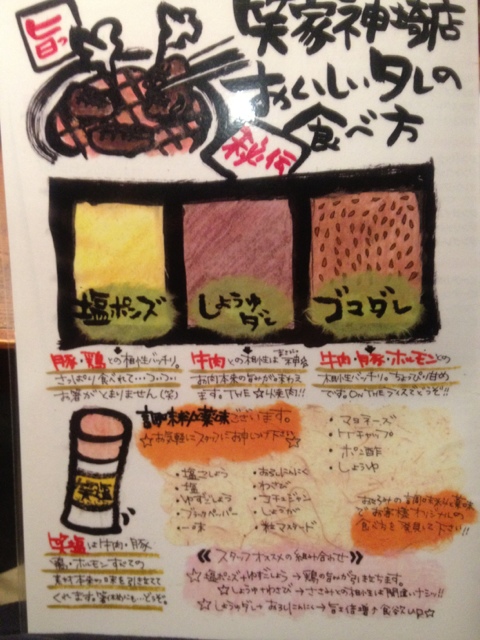 旨っ
笑家神埼店
おいしいタレの
食べ方
秘伝
塩ポンズ
しょうゆ
ダレ
ゴマダレ
豚・鶏との相性バッチリ。
さっぱり食べれて…ついつい
お箸がとまりません(笑)
牛肉との相性は
お肉本来の旨みが味わえ
ます。THE☆焼肉!!
牛肉・豚・ホルモンとの
相性バッチリ。ちょっぴり甘め
です。ON THE ライスでどうぞ!!
調味料&薬味ございます。
☆お気軽にスタッフにお申しつけ下さい☆
・塩こしょう
・塩
・ゆずこしょう
・ブラックペッパー
・一味
・おろしにんにく
・わさび
・コチュジャン
・しょうが
・粒マスタード
・マヨネーズ
・ケチャップ
・ポン酢
・しょうゆ
でお客様オリジナルの
食べ方を発見して下さい!!
笑塩
笑塩は牛肉・豚・
鶏・ホルモンすべての
素材本来の味を引き立てて
くれます。
《スタッフオススメの組み合わせ》
☆塩ポンズ+ゆずこしょう→鶏の旨みが引き立ちます。
☆しょうゆ+わさび→ささみとの相性は間違いナシッ!!
☆しょうゆダレ+おろしにんにく→旨さ倍増♪食欲UP☆